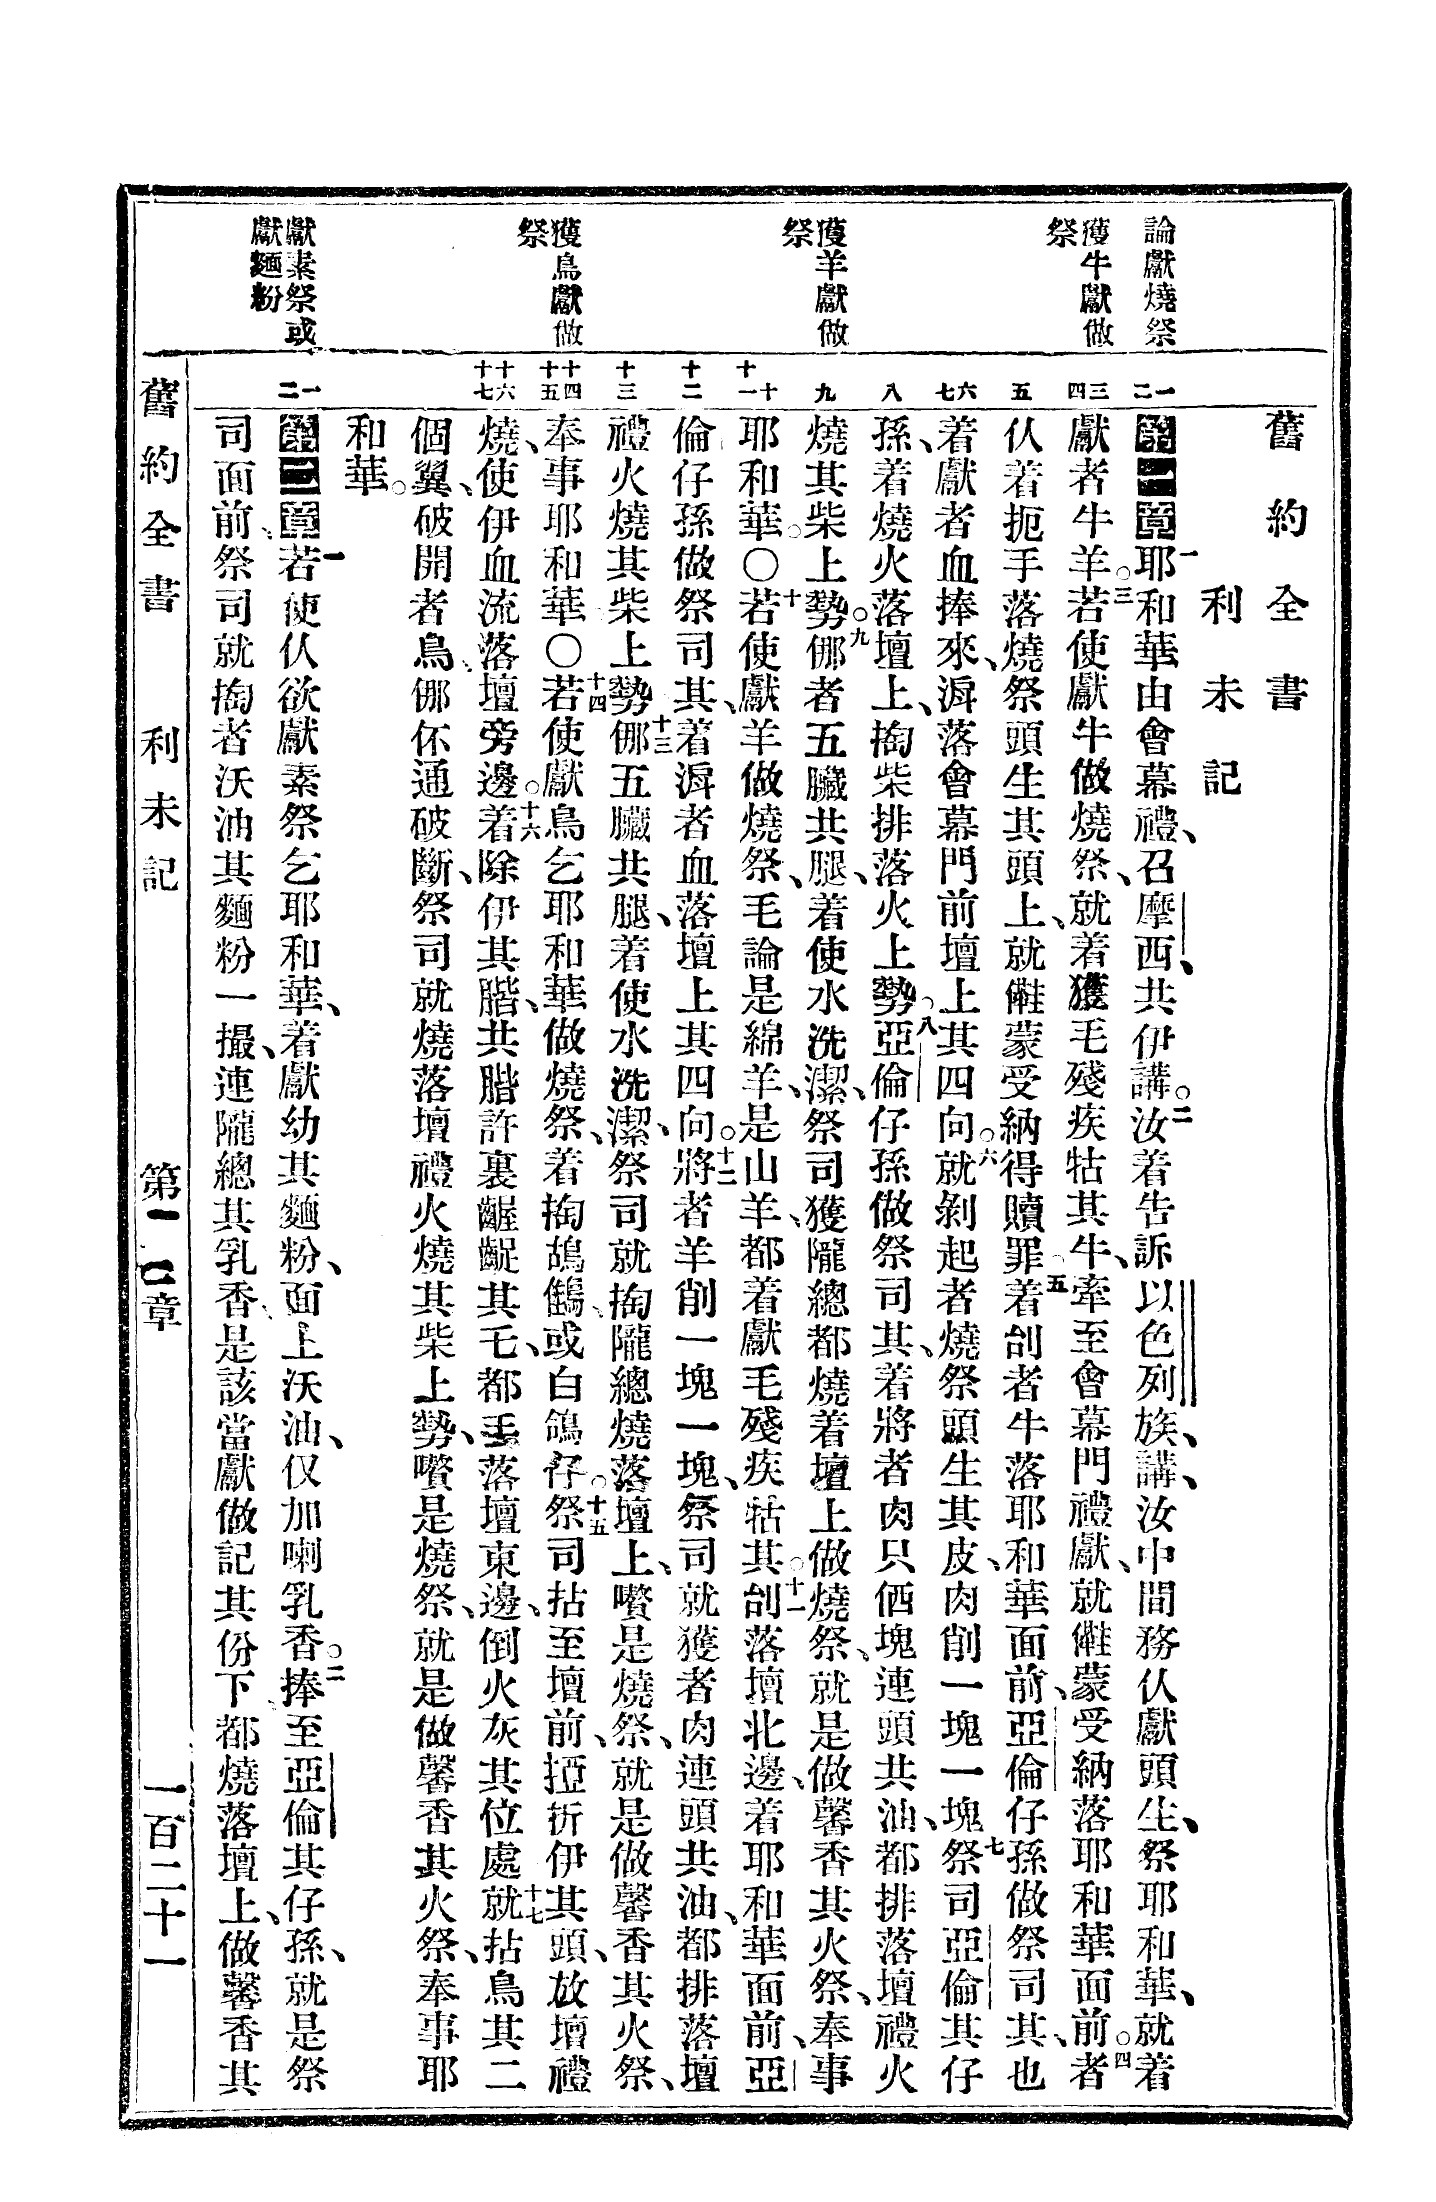 舊約全書
利未記
論獻燒祭
獲牛獻做
祭
獲羊獻做
祭
獲鳥獻做
祭
獻素祭或
獻麵粉
一二
三四
五
六七
八
九
十十一
十二
十三
十四十五
十六十七
一二
第一章一耶和華由會幕禮、召摩西、共伊講。二汝着告訴以色列族、講、汝中間務仈獻頭生、祭耶和華、就着
獻者牛羊。三若使獻牛做燒祭、就着獲毛殘疾牯其牛、牽至會幕門禮獻、就㒕蒙受納落耶和華面前。四者
仈着扼手落燒祭頭生其頭上、就㒕蒙受納得贖罪。五着刣者牛落耶和華面前、亞倫仔孫做祭司其、也
着獻者血捧來、㴙落會幕門前壇上其四向。六就剝起者燒祭頭生其皮、肉削一塊一塊。七祭司亞倫其仔
孫、着燒火落壇上、掏柴排落火上勢。八亞倫仔孫做祭司其、着將者肉只価塊連頭共油、都排落壇禮火
燒其柴上勢。九䢰者五臟共腿、着使水洗潔、祭司獲隴總都燒着壇上做燒祭、就是做馨香其火祭、奉事
耶和華。〇十若使獻羊做燒祭、毛論是綿羊、是山羊、都着獻毛殘疾牯其。十一刣落壇北邊、着耶和華面前、亞
倫仔孫做祭司其、着㴙者血落壇上其四向。十二將者羊削一塊一塊、祭司就獲者肉連頭共油、都排落壇
禮火燒其柴上勢。十三䢰五臟共腿、着使水洗潔、祭司就掏隴總燒落壇上、嚽是燒祭、就是做馨香其火祭、
奉事耶和華〇十四若使獻鳥乞耶和華做燒祭、着掏鴣鷦、或白鴿仔。十五祭司拈至壇前、挜折伊其頭、放壇禮
燒、使伊血流落壇旁邊。十六着除伊其膪、共膪許裏齷齪其乇、都丢落壇東邊、倒火灰其位處。十七就拈鳥其二
個翼、破開者鳥、䢰伓通破斷、祭司就燒落壇禮火燒其柴上勢、嚽是燒祭、就是做馨香其火祭、奉事耶
和華。
第二章一若使仈欲獻素祭乞耶和華、着獻幼其麵粉、面上沃油、仅加喇乳香。二捧至亞倫其仔孫、就是祭
司面前、祭司就掏者沃油其麵粉一撮、連隴總其乳香、是該當獻做記其份下、都燒落壇上、做馨香其
舊約全書　利未記　第一 二章　一百二十一